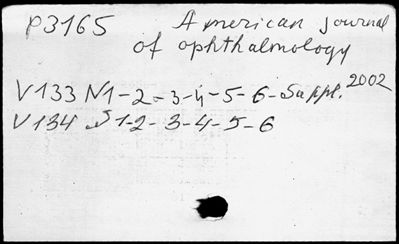 P3165 American journal
of ophthalmology
V133 N1-2-3-4-5-6-Suppl. 2002
V134 N1-2-3-4-5-6